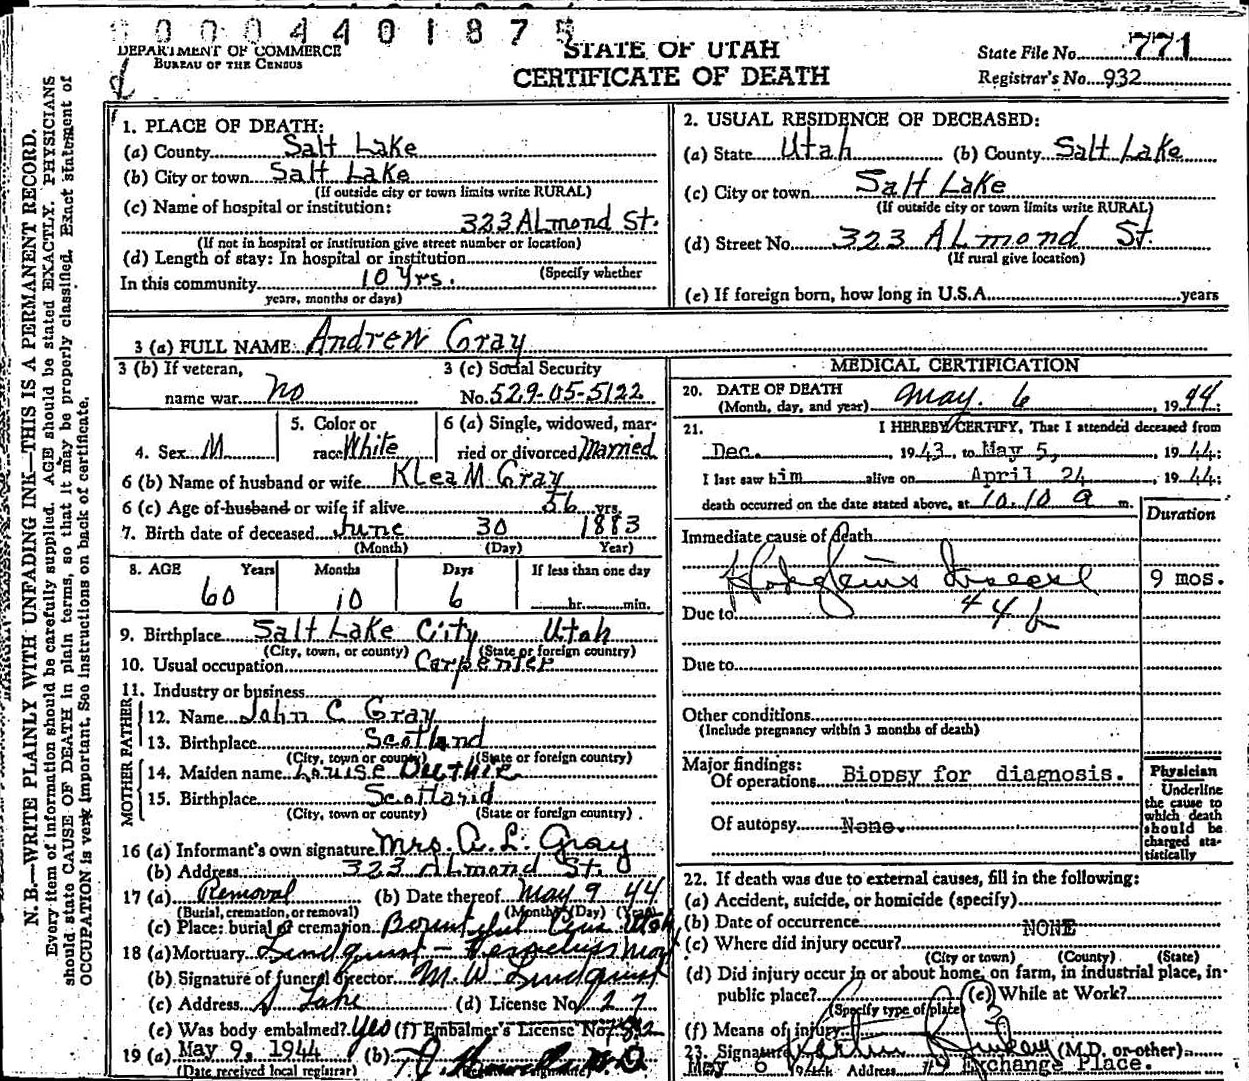 0000440187
DEPARTMENT OF COMMERCE
BUREAU OF THE CENSUS
STATE OF UTAH
CERTIFICATE OF DEATH
State File No. 771
Registrar's No. 932
N. B.—WRITE PLAINLY WITH UNFADING INK—THIS IS A PERMANENT RECORD.
Every item of information should be carefully supplied. AGE should be stated EXACTLY. PHYSICIANS
should state CAUSE OF DEATH in plain terms, so that it may be properly classified. Exact statement of
OCCUPATION is very important. See instructions on back of certificate.
1. PLACE OF DEATH:
(a) County Salt Lake
(b) City or town Salt Lake
(If outside city or town limits write RURAL)
(c) Name of hospital or institution:
323 Almond St.
(If not in hospital or institution give street number or location)
(d) Length of stay: In hospital or institution
(Specify whether
In this community 10 Yrs.
years, months or days)
2. USUAL RESIDENCE OF DECEASED:
(a) State Utah (b) County Salt Lake
(c) City or town Salt Lake
(If outside city or town limits write RURAL)
(d) Street No. 323 Almond St.
(If rural give location)
(e) If foreign born, how long in U.S.A. years
3 (a) FULL NAME: Andrew Gray
3 (b) If veteran,
name war no
3 (c) Social Security
No. 529-05-5122
4. Sex M
5. Color or
race White
6 (a) Single, widowed, mar-
ried or divorced Married
6 (b) Name of husband or wife Klea M. Gray
6 (c) Age of husband or wife if alive 56 yrs.
7. Birth date of deceased June 30 1883
(Month) (Day) Year)
8. AGE Years Months Days If less than one day
60 10 6 hr. min.
9. Birthplace Salt Lake City Utah
(City, town, or county) (State or foreign country)
10. Usual occupation Carpenter
11. Industry or business
FATHER
12. Name John C Gray
13. Birthplace Scotland
(City, town or county) (State or foreign country)
MOTHER
14. Maiden name Louise Duthie
15. Birthplace Scotland
(City, town or county) (State or foreign country)
16 (a) Informant's own signature Mrs. A. L. Gray
(b) Address 323 Almond St.
17 (a) Removal (b) Date thereof May 9 44
(Burial, cremation, or removal) (Month) (Day) (Year)
(c) Place: burial or cremation Bountiful Utah
18 (a) Mortuary Lindquist
(b) Signature of funeral director M. W. Lindquist
(c) Address S Lake (d) License No. 127
(e) Was body embalmed? Yes (f) Embalmer's License No.
19 (a) May 9, 1944 (b)
(Date received local registrar)
MEDICAL CERTIFICATION
20. DATE OF DEATH
(Month, day, and year) May 6 1944:
21. I HEREBY CERTIFY, That I attended deceased from
Dec. 1943, to May 5, 1944:
I last saw him alive on April 24, 1944:
death occurred on the date stated above, at 10.10 a m.
Duration
Immediate cause of death
Hodgkins Disease 9 mos.
44 b
Due to
Due to
Other conditions
(Include pregnancy within 3 months of death)
Major findings:
Of operations Biopsy for diagnosis.
Of autopsy None.
Physician
Underline
the cause to
which death
should be
charged sta-
tistically
22. If death was due to external causes, fill in the following:
(a) Accident, suicide, or homicide (specify)
(b) Date of occurrence NONE
(c) Where did injury occur?
(City or town) (County) (State)
(d) Did injury occur in or about home, on farm, in industrial place, in-
public place? (e) While at Work?
(Specify type of place)
(f) Means of injury
23. Signature (M.D. or other)
May 6 Address 19 Exchange Place.